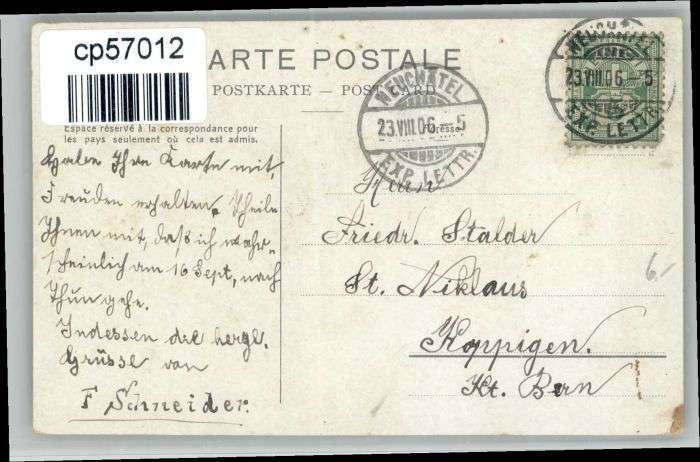 cp57012
CARTE POSTALE
POSTKARTE — POST CARD
Espace réservé à la correspondance pour
les pays seulement où cela est admis.
Adresse
NEUCHÂTEL
23.VIII.06.–5
EXP. LETTR.
NEUCHÂTEL
23.VIII.06.–5
EXP. LETTR.
Habe Ihre Karte mit
Freuden erhalten. Theile
Ihnen mit, daß ich wahr-
scheinlich am 16 Sept, nach
Thun gehe.
Indessen die hergl.
Grüsse von
F Schneider.
Herrn
Friedr. Stalder
St. Niklaus
Koppigen.
Kt. Bern
6.-